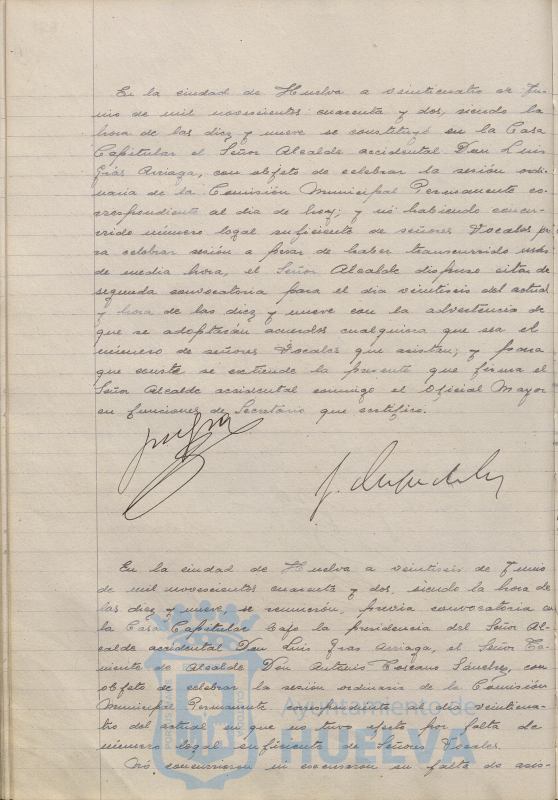 En la ciudad de Huelva a veinticuatro de Ju-
nio de mil novecientos cuarenta y dos, siendo la
hora de las diez y nueve se constituyó en la Casa
Capitular el Señor Alcalde accidental Don Luis
Gras Arriaga, con objeto de celebrar la sesión ordi-
naria de la Comisión Municipal Permanente co-
rrespondiente al día de hoy; y no habiendo concu-
rrido número legal suficiente de señores Vocales pa
ra celebrar sesión a pesar de haber transcurrido más
de media hora, el Señor Alcalde dispuso citar de
segunda convocatoria para el día veintiseis del actual
y hora de las diez y nueve con la advertencia de
que se adoptarán acuerdos cualquiera que sea el
número de señores Vocales que asistan; y para
que conste se extiende la presente que firma el
Señor Alcalde accidental conmigo el Oficial Mayor
en funciones de Secretario que certifico.
En la ciudad de Huelva a veintiseis de Junio
de mil novecientos cuarenta y dos, siendo la hora de
las diez y nueve, se reunieron, previa convocatoria en
la Casa Capitular bajo la presidencia del Señor Al-
calde accidental Don Luis Gras Arriaga, el Señor Te-
niente de Alcalde Don Antonio Toscano Sánchez, con
objeto de celebrar la sesión ordinaria de la Comisión
Municipal Permanente correspondiente al día veinticua-
tro del actual en que no tuvo efecto por falta de
número legal suficiente de Señores Vocales.
No concurrieron ni excusaron su falta de asis-
Ayuntamiento de
HUELVA